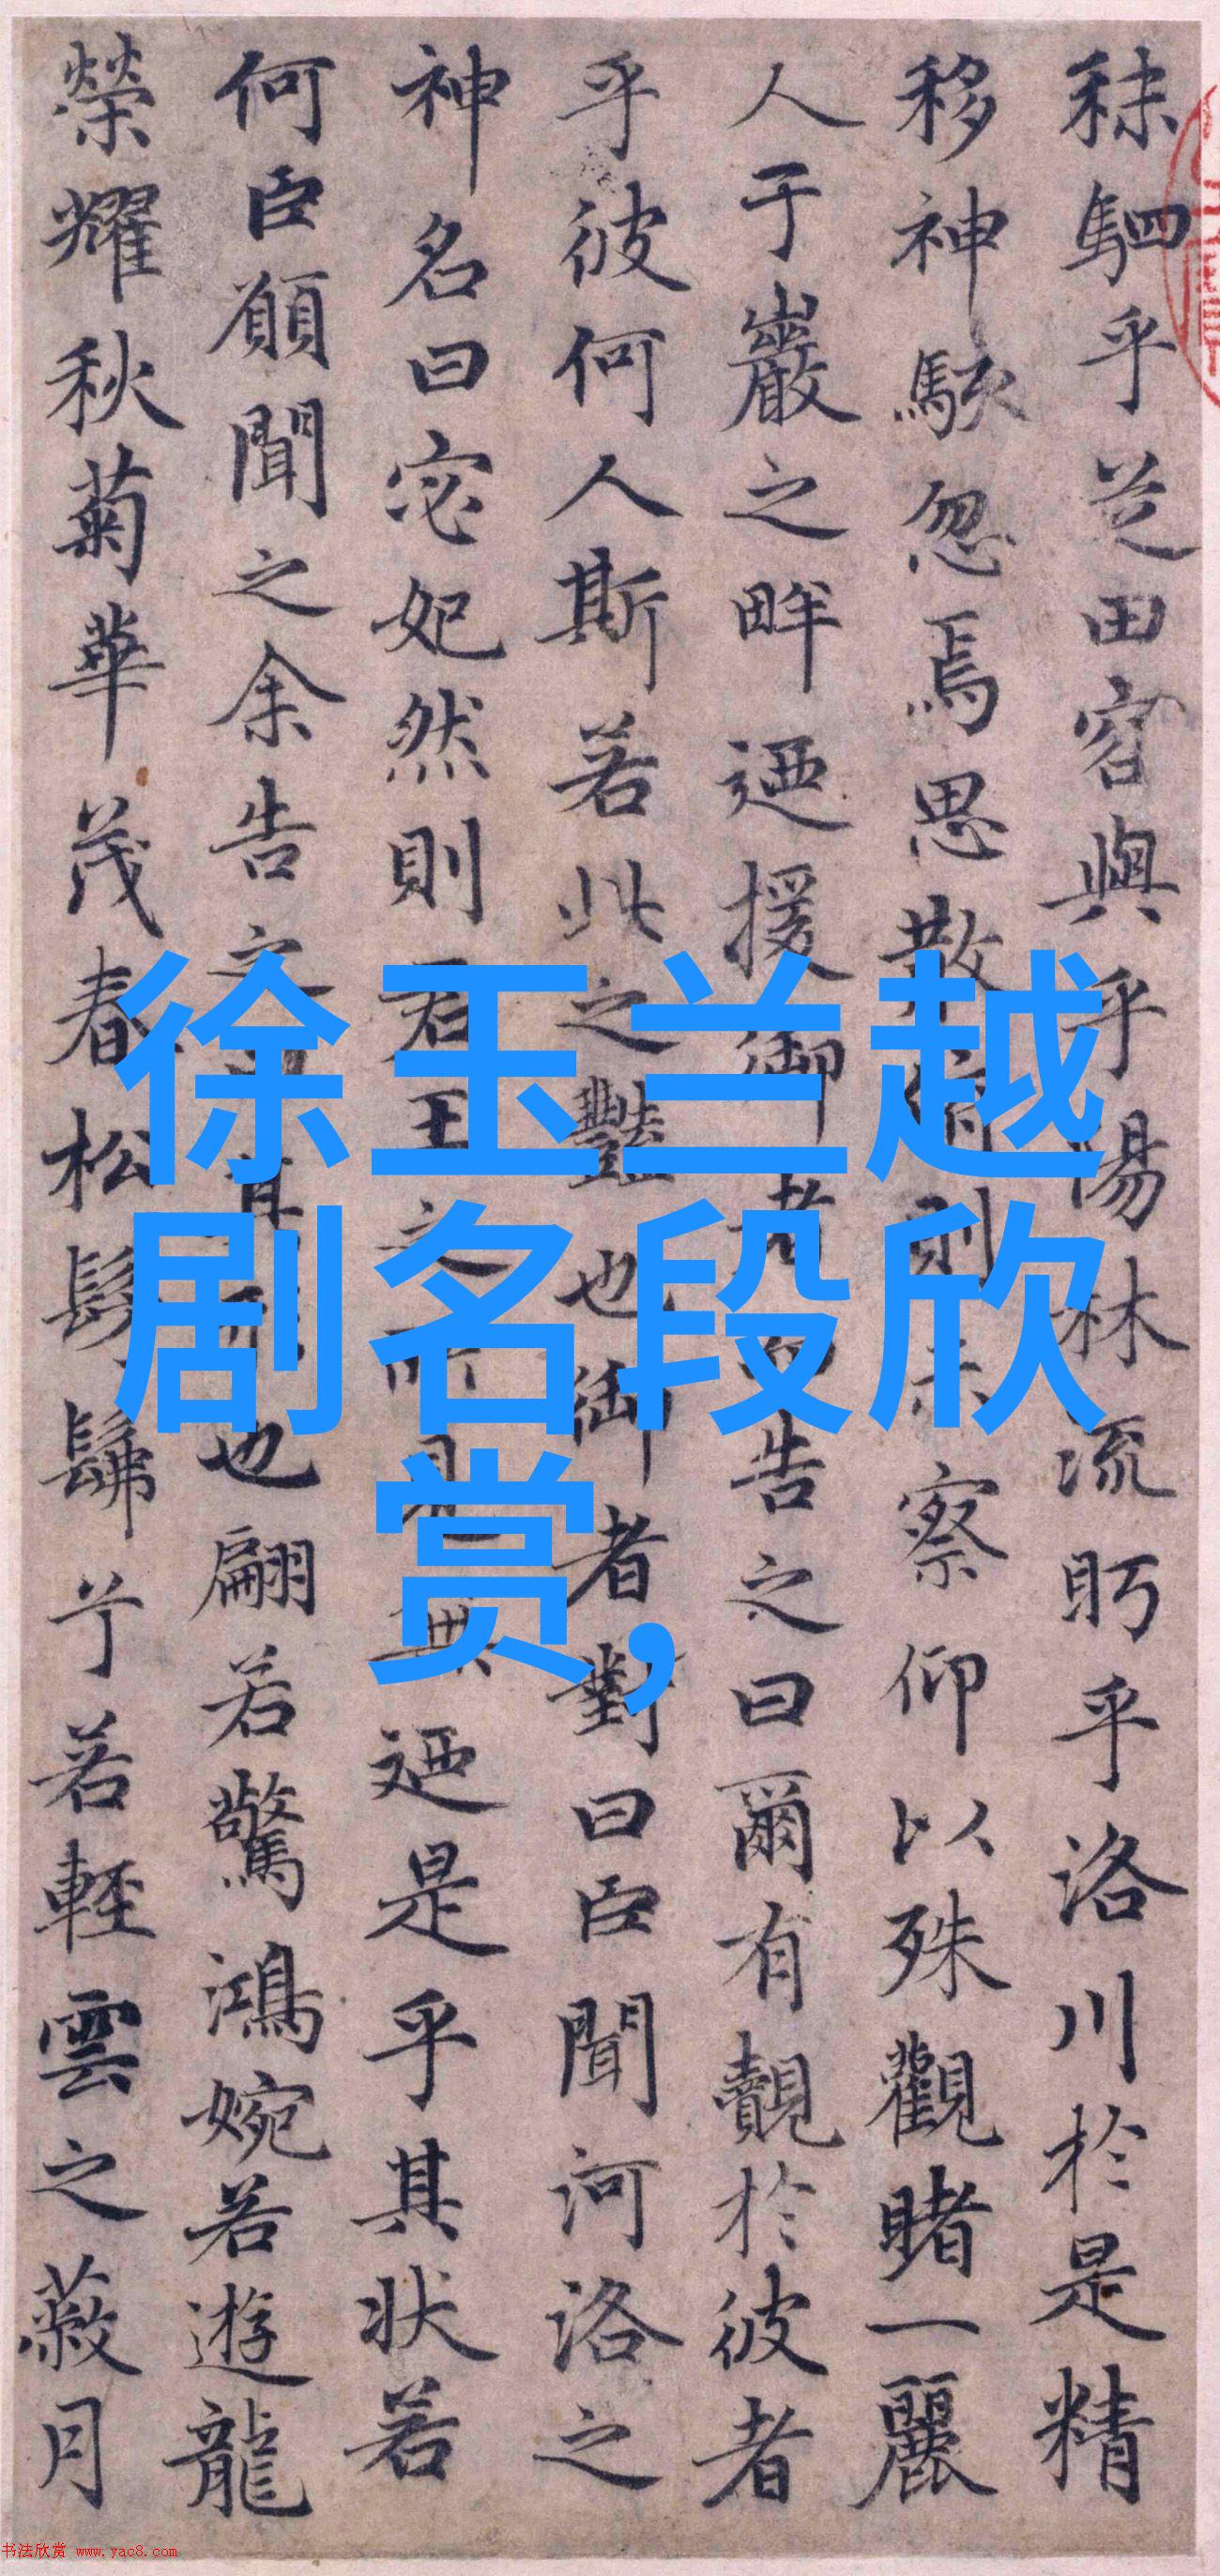 秣駟乎芝田容與乎陽林流眄乎洛川於是精
移神駭忽焉思散俯則未察仰以殊觀睹一麗
人于巖之畔迺援御者而告之曰爾有覿於彼者
乎彼何人斯若此之豔也御者對曰臣聞河洛之
神名曰宓妃然則君王之所見無迺是乎其狀若
何臣願聞之余告之曰其形也翩若驚鴻婉若遊龍
榮耀秋菊華茂春松髣髴兮若輕雲之蔽月
徐玉兰越
剧名段欣
赏,
书法欣赏 www.yac8.com